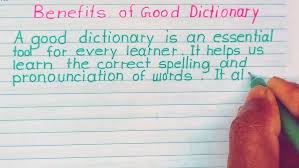 Benefits of Good Dictionary
A good dictionary is an essential
tool for every learner. It helps us
learn the correct spelling and
pronounciation of words. It al